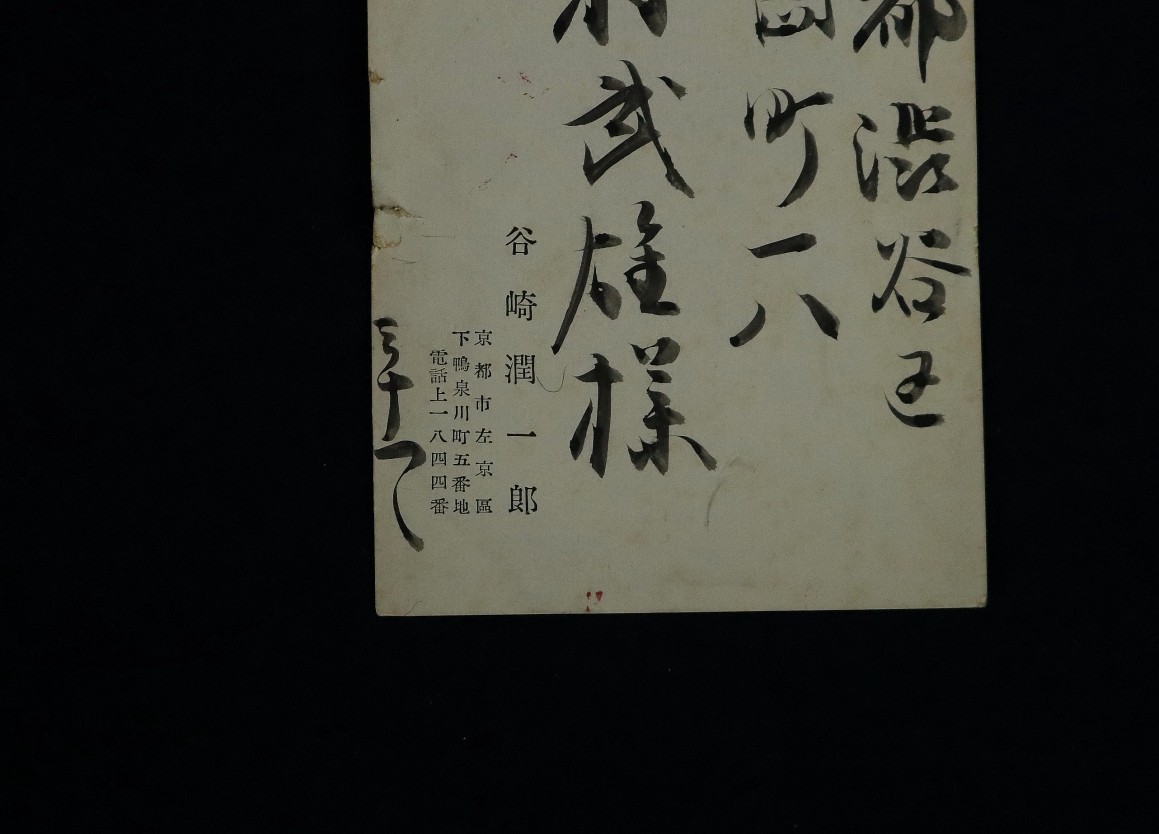 都澁谷区
町一八
武雄様
谷崎潤一郎
京都市左京區
下鴨泉川町五番地
電話上一八四四番